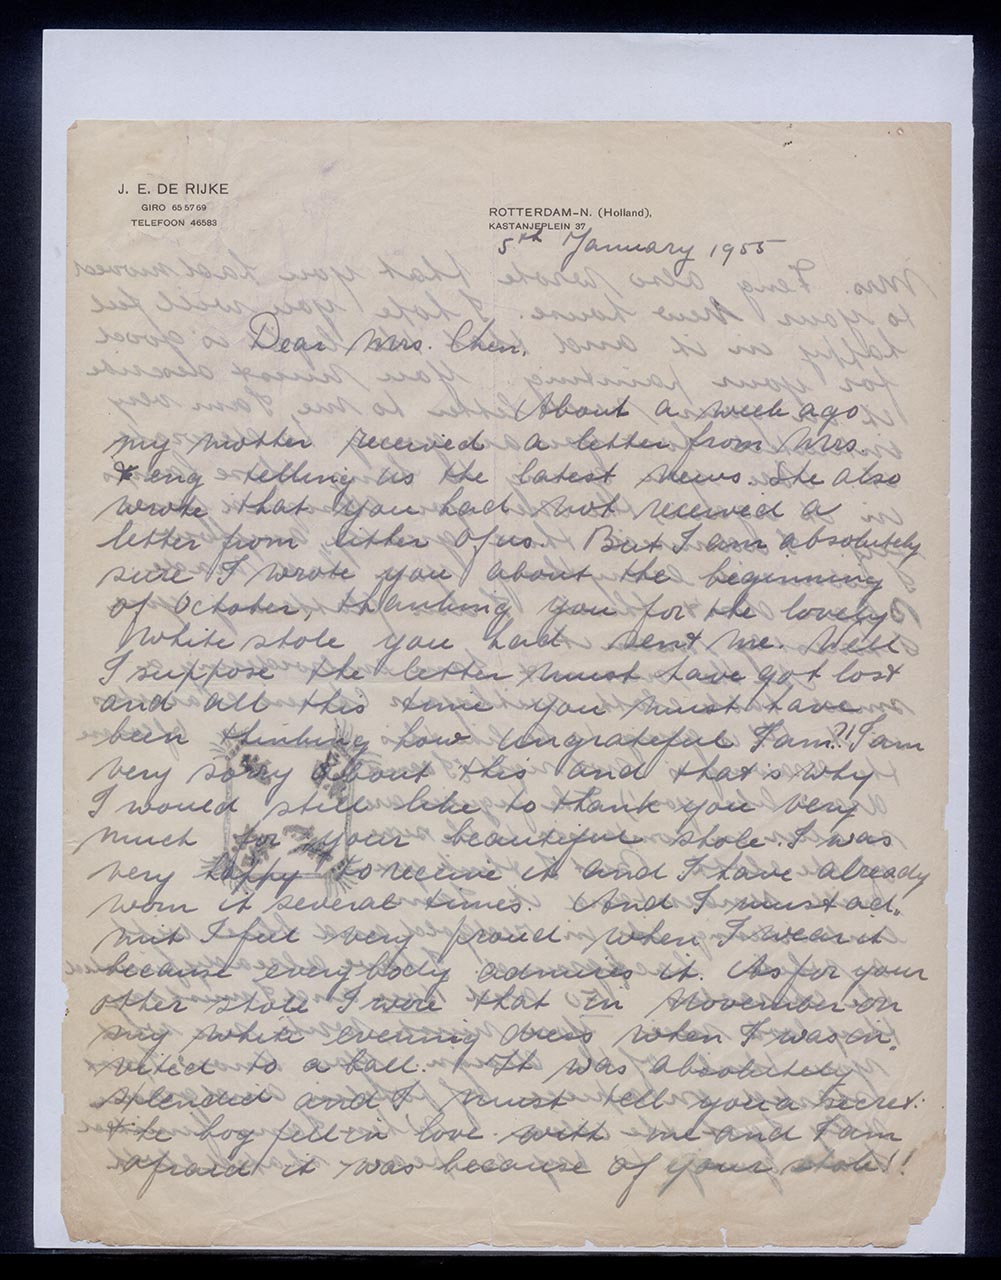 J. E. DE RIJKE
GIRO 655769
TELEFOON 46583
ROTTERDAM-N. (Holland),
KASTANJEPLEIN 37
5th January 1955
Dear Mrs. Chen,
About a week ago
my mother received a letter from Mrs.
Feng telling us the latest news. She also
wrote that you had not received a
letter from either of us. But I am absolutely
sure I wrote you about the beginning
of October, thanking you for the lovely
white stole you had sent me. Well
I suppose the letter must have got lost
and all this time you must have
been thinking how ungrateful I am?! I am
very sorry about this and that's why
I would still like to thank you very
much for your beautiful stole. I was
very happy to receive it and I have already
worn it several times. And I must ad-
mit I feel very proud when I wear it
because everybody admires it. As for your
other stole I wore that in November on
my white evening dress when I was in-
vited to a ball. It was absolutely
splendid and I must tell you a secret:
the boy fell in love with me and I am
afraid it was because of your stole!!